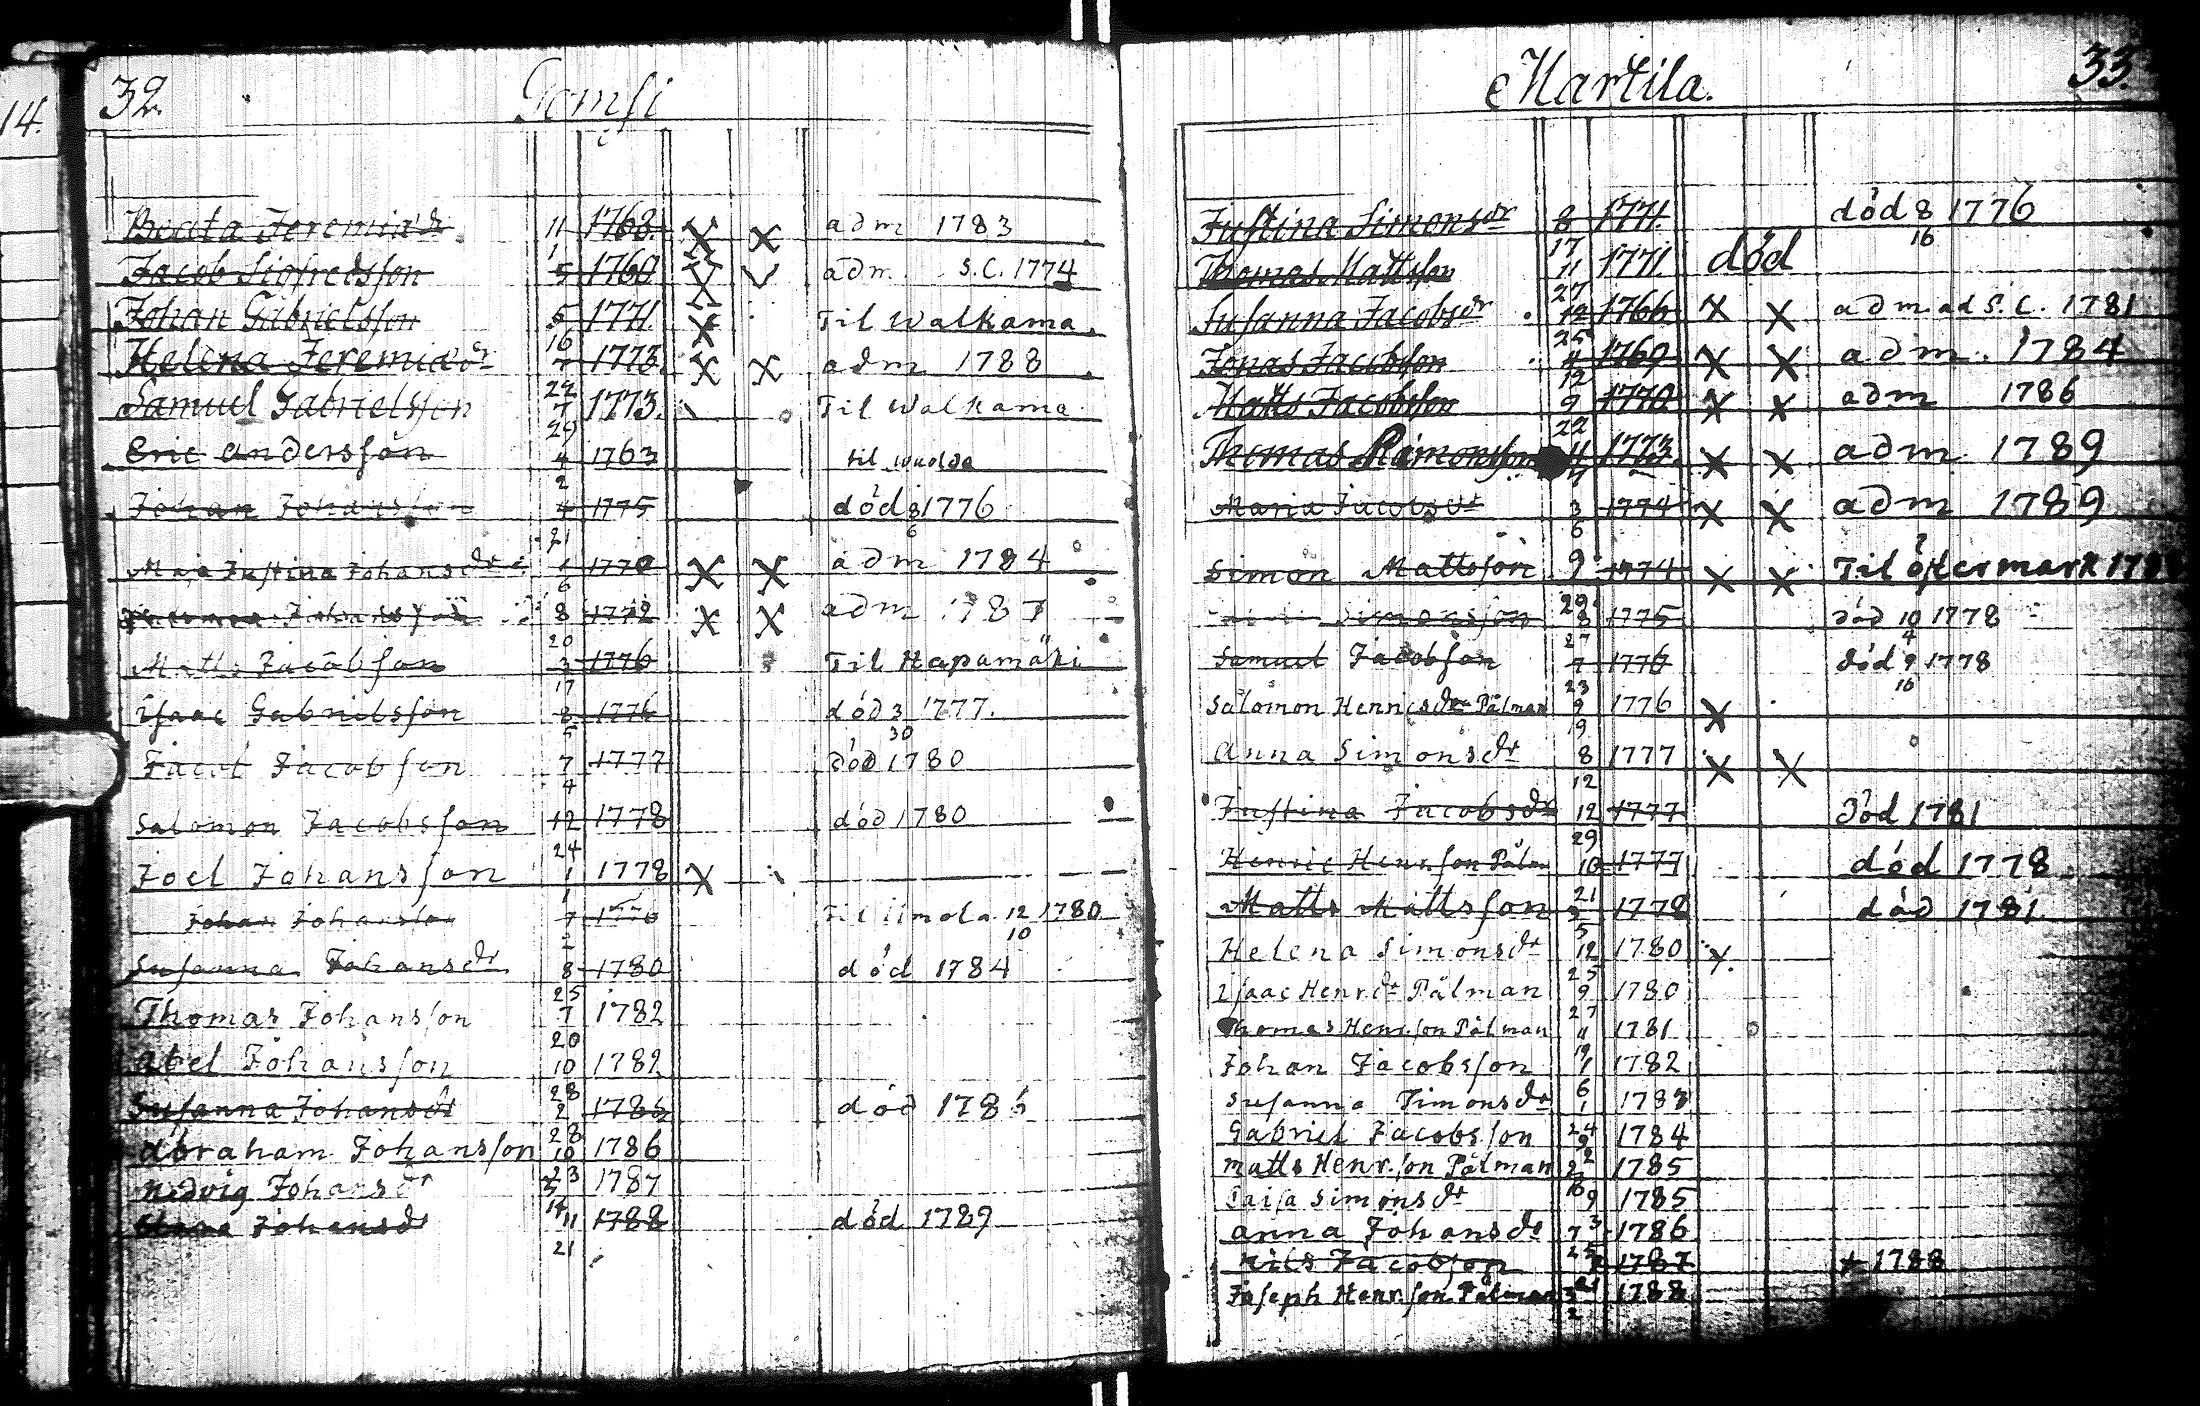 14.
32.
Tomsi
Beata Jeremiædr 11 1768. X X adm 1783
1
Jacob Sigfredsson 5 1760 X adm. S.C. 1774
Johan Gabrielsson 5 1771 X Til Walkama
16
Helena Jeremiædr 7 1773 X X adm 1788
22
Samuel Gabrielsson 7 1773. Til Walkama
29
Eric Andersson 4 1763 til
2
Johan Johansson 4 1775 död 8 1776
21 6
Maja Justina Johansdr 1 1770 X X adm 1784
6
Johansson 8 1772 X X adm 1787
20
Matts Jacobsson 3 1776 Til Hapamäki
17
Isaac Gabrielsson 8 1776 död 3 1777.
5 30
Jacob Jacobsson 7 1777 död 1780
4
Salomon Jacobsson 12 1778 död 1780
24
Joel Johansson 1 1778 X
1
Johan Johansson 7 1776 Til Ilmola 12 1780
2 10
Susanna Johansdr 8 1780 död 1784
25
Thomas Johansson 7 1782
20
Abel Johansson 10 1782
28
Susanna Johansdr 2 1786 död 1786
28
Abraham Johansson 10 1786
23
Hedvig Johansdr 3 1787
14
Johansdr 11 1788 död 1789
21
Martila.
33.
Justina Simonsdr 8 1771. död 8 1776
17 16
Thomas Mattsson 11 1771 död
27
Susanna Jacobsdr 12 1766 X X adm. ad S.C. 1781
25
Jonas Jacobsson 4 1769 X X adm. 1784
12
Matts Jacobsson 9 1770 X X adm 1786
22
Thomas Simonsson 11 1773. X X adm 1789
7
Maria Jacobsdr 3 1774 X X adm 1789
6
Simon Mattsson 9 1774 X X Til Östermark
29
Simonsson 8 1775 död 10 1778
27 4
Samuel Jacobsson 7 1776 död 9 1778
23 16
Salomon Henricsdr Pålman 9 1776 X
19
Anna Simonsdr 8 1777 X X
12
Justina Jacobsdr 12 1777 död 1781
29
Henric Henr.son Pålm 10 1777 död 1778
21
Matts Mattsson 2 1778 död 1781
5
Helena Simonsdr 12 1780 X.
25
Isaac Henrdr Pålman 9 1780
27
Thomas Henr.son Pålman 11 1781
19
Johan Jacobsson 1 1782
6
Susanna Simonsdr 1 1783
24
Gabriel Jacobsson 9 1784
2
Matts Henr.son Pålman 2 1785
18
Caisa Simonsdr 9 1785
3
Anna Johansdr 7 1786
25
Nils Jacobsson 1787 † 1788
21
Joseph Henr.son Pålman 3 1788
2